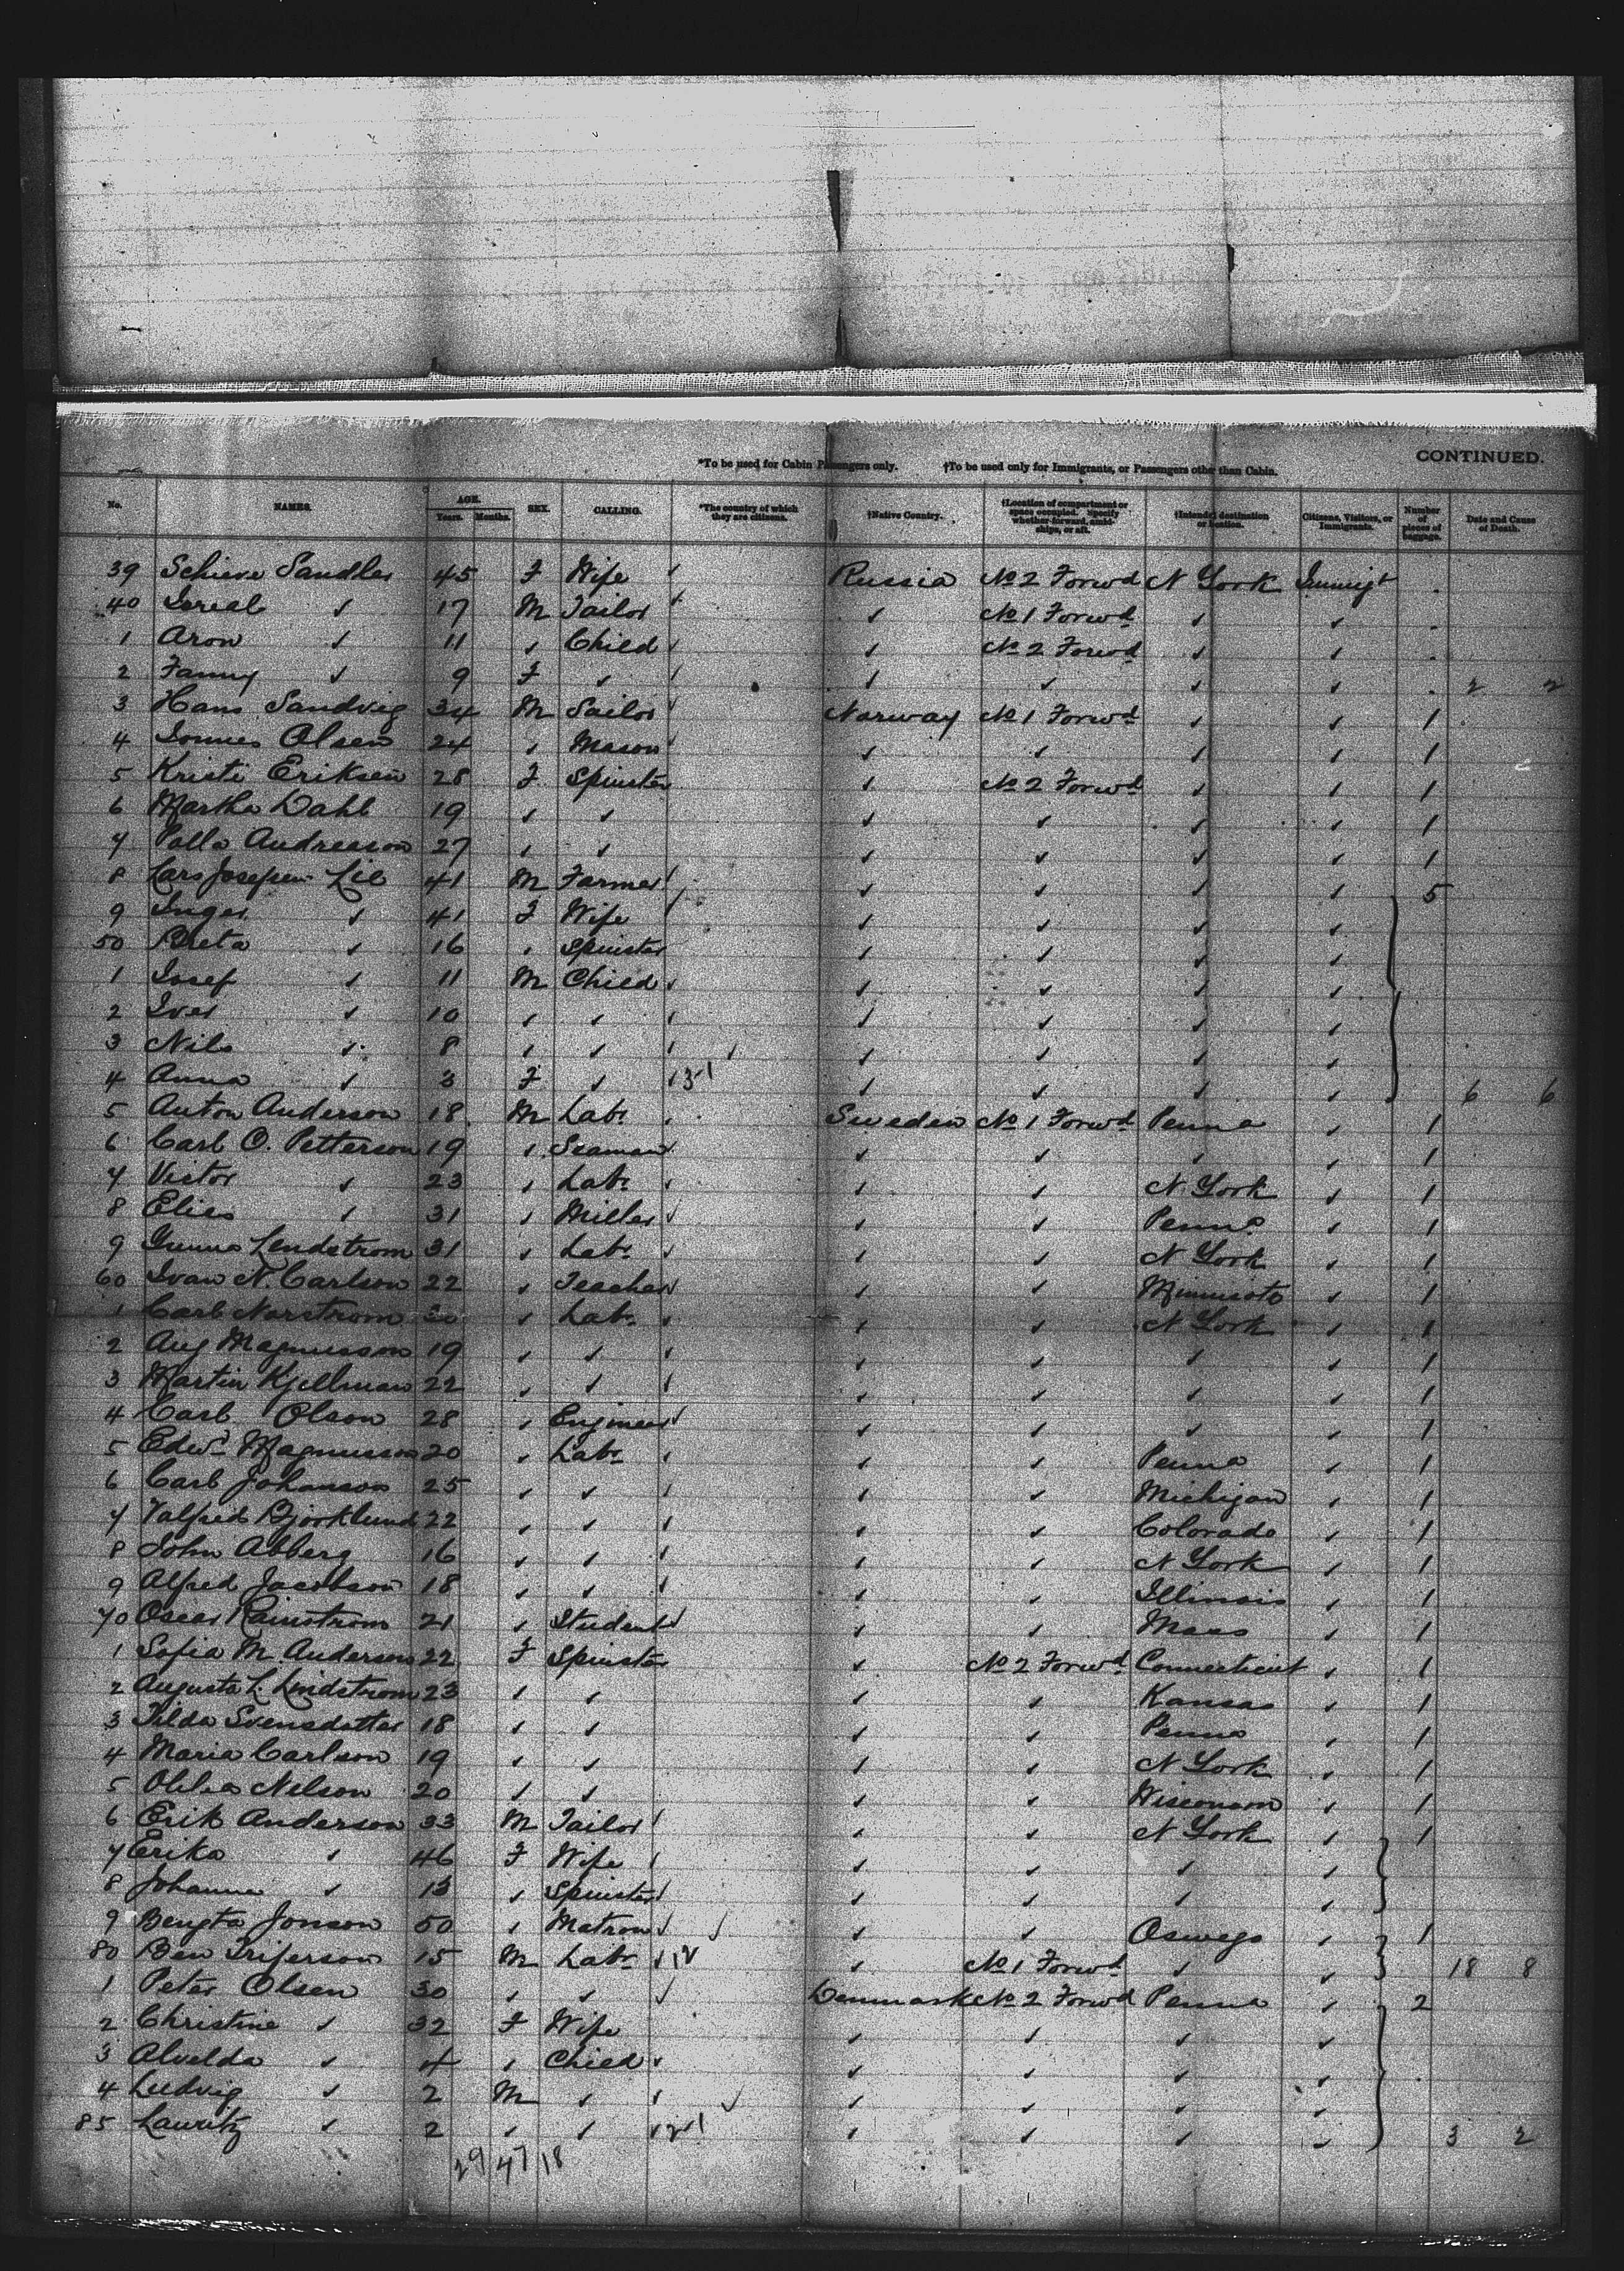 *To be used for Cabin Passengers only. †To be used only for Immigrants, or Passengers other than Cabin. CONTINUED.
No. NAMES. AGE. Years. Months. SEX. CALLING. *The country of which they are citizens. †Native Country. †Location of compartment or space occupied. Specify whether forward, amidships, or aft. †Intended destination or location. Citizens, Visitors, or Immigrants. Number of pieces of baggage. Date and Cause of Death.
39 Schieve Sandler 45 F Wife Russia No 2 Forwd N York Immigt
40 Isreal ✓ 17 M Tailor ✓ No 1 Forwd ✓ ✓
1 Aron ✓ 11 ✓ Child ✓ No 2 Forwd ✓ ✓
2 Fanny ✓ 9 F ✓ ✓ ✓ ✓ ✓ 2 2
3 Hans Sandvig 34 M Sailor Norway No 1 Forwd ✓ ✓ 1
4 Olsen 24 ✓ Mason ✓ ✓ ✓ ✓ 1
5 Kristi Eriksen 28 F Spinster ✓ No 2 Forwd ✓ ✓ 1
6 Martha Dahl 19 ✓ ✓ ✓ ✓ ✓ ✓ 1
7 Andreason 27 ✓ ✓ ✓ ✓ ✓ ✓ 1
8 Lars Lie 41 M Farmer ✓ ✓ ✓ ✓ 5
9 Inger ✓ 41 F Wife ✓ ✓ ✓ ✓
50 ✓ 16 ✓ Spinster ✓ ✓ ✓ ✓
1 Josef ✓ 11 M Child ✓ ✓ ✓ ✓
2 Iver ✓ 10 ✓ ✓ ✓ ✓ ✓ ✓
3 Nils ✓ 8 ✓ ✓ ✓ ✓ ✓ ✓
4 Anna ✓ 3 F ✓ 3-1 ✓ ✓ ✓ ✓ 6 6
5 Anton Anderson 18 M Labr Sweden No 1 Forwd Penna ✓ 1
6 Carl O. Petterson 19 ✓ Seaman ✓ ✓ ✓ ✓ 1
7 Victor ✓ 23 ✓ Labr ✓ ✓ N York ✓ 1
8 Elies ✓ 31 ✓ Miller ✓ ✓ Penna ✓ 1
9 Lendstrom 31 ✓ Labr ✓ ✓ N York ✓ 1
60 Ivan N. Carlson 22 ✓ Teacher ✓ ✓ Minnisota ✓ 1
1 Carl Norstrom 30 ✓ Labr ✓ ✓ N York ✓ 1
2 Aug Magnusson 19 ✓ ✓ ✓ ✓ ✓ ✓ 1
3 Martin Kjellman 22 ✓ ✓ ✓ ✓ ✓ ✓ 1
4 Carl Olson 28 ✓ Engineer ✓ ✓ ✓ ✓ 1
5 Edwd Magnusson 20 ✓ Labr ✓ ✓ Penna ✓ 1
6 Carl Johanson 25 ✓ ✓ ✓ ✓ Michigan ✓ 1
7 Valfred Bjorklund 22 ✓ ✓ ✓ ✓ Colorado ✓ 1
8 John Abberg 16 ✓ ✓ ✓ ✓ N York ✓ 1
9 Alfred Jacobson 18 ✓ ✓ ✓ ✓ Illinois ✓ 1
70 Oscar 21 ✓ Student ✓ ✓ Mass ✓ 1
1 Sofia M. Anderson 22 F Spinster ✓ No 2 Forwd Connecticut ✓ 1
2 Augusta L. Lindstrom 23 ✓ ✓ ✓ ✓ Kansas ✓ 1
3 Tilda Svensdatter 18 ✓ ✓ ✓ ✓ Penna ✓ 1
4 Maria Carlson 19 ✓ ✓ ✓ ✓ N York ✓ 1
5 Nelson 20 ✓ ✓ ✓ ✓ Wisconson ✓ 1
6 Erik Anderson 33 M Tailor ✓ ✓ N York ✓ 1
7 Erika ✓ 46 F Wife ✓ ✓ ✓ ✓
8 Johanna ✓ 13 ✓ Spinster ✓ ✓ ✓ ✓
9 Bengta Jonson 50 ✓ Matron ✓ ✓ Oswego ✓ 1
80 Ben 15 M Labr ✓ No 1 Forwd ✓ ✓ 18 8
1 Peter Olsen 30 ✓ ✓ Denmark No 2 Forwd Penna ✓ 2
2 Christine ✓ 32 F Wife ✓ ✓ ✓ ✓
3 Alvelda ✓ 4 ✓ Child ✓ ✓ ✓ ✓
4 Ludvig ✓ 2 M ✓ ✓ ✓ ✓ ✓
85 Lauritz ✓ 2 ✓ ✓ 2-1 ✓ ✓ ✓ ✓ 3 2
29 47 18